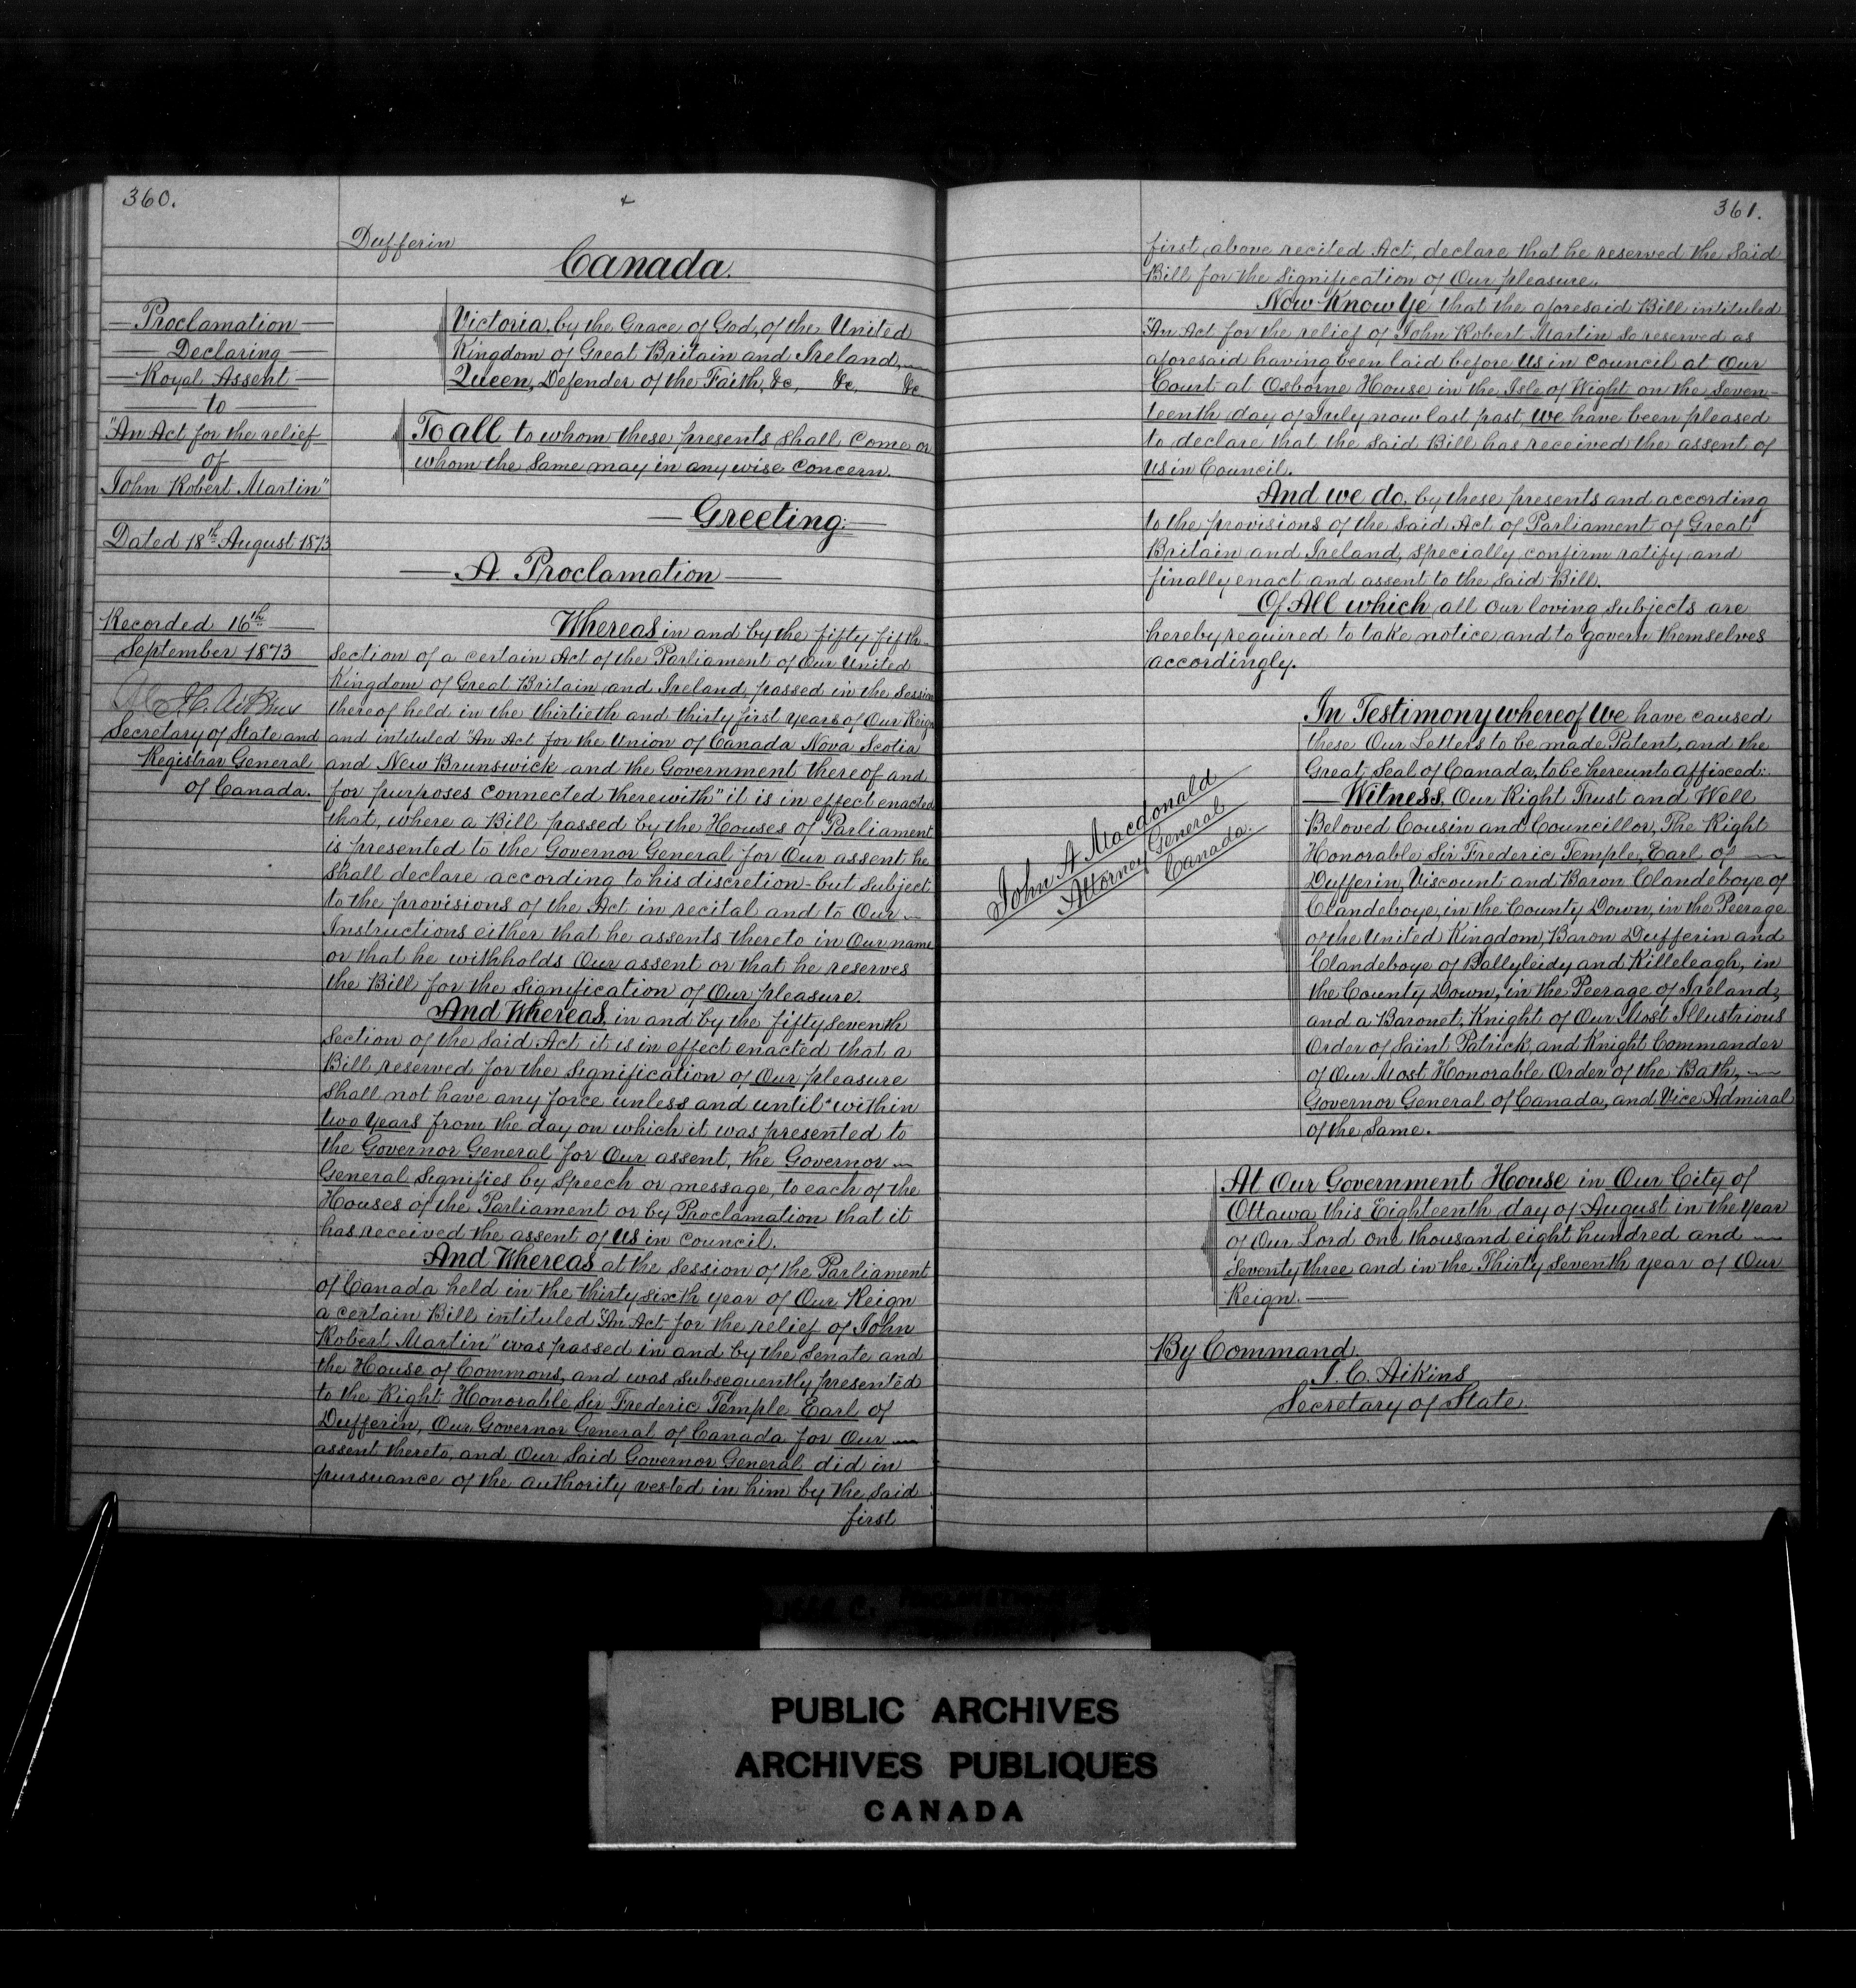 360.
Dufferin
Canada.
Proclamation
Declaring
Royal Assent
to
"An Act for the relief
of
John Robert Martin"
Dated 18th August 1873
Recorded 16th
September 1873
Secretary of State and
Registrar General
of Canada.
Victoria, by the Grace of God, of the United
Kingdom of Great Britain and Ireland,
Queen, Defender of the Faith, &c, &c, &c.
To all to whom these presents shall come or
whom the same may in any wise concern.
Greeting:
A Proclamation
Whereas in and by the fifty fifth
Section of a certain Act of the Parliament of Our United
Kingdom of Great Britain and Ireland, passed in the Session
thereof held in the thirtieth and thirty first years of Our Reign
and intituled "An Act for the Union of Canada Nova Scotia
and New Brunswick and the Government thereof and
for purposes connected therewith" it is in effect enacted
that, where a Bill passed by the Houses of Parliament
is presented to the Governor General for Our assent he
shall declare according to his discretion - but subject
to the provisions of the Act in recital and to Our
Instructions either that he assents thereto in Our name
or that he withholds Our assent or that he reserves
the Bill for the signification of Our pleasure.
And Whereas, in and by the fifty seventh
Section of the said Act it is in effect enacted that a
Bill reserved for the signification of Our pleasure
shall not have any force unless and until within
two years from the day on which it was presented to
the Governor General for Our assent, the Governor
General signifies by speech or message, to each of the
Houses of the Parliament or by Proclamation that it
has received the assent of us in Council.
And Whereas at the Session of the Parliament
of Canada held in the thirty sixth year of Our Reign
a certain Bill intituled "An Act for the relief of John
Robert Martin" was passed in and by the Senate and
the House of Commons, and was subsequently presented
to the Right Honorable Sir Frederic Temple Earl of
Dufferin, Our Governor General of Canada for Our
assent thereto, and Our Said Governor General did in
pursuance of the authority vested in him by the said
first
361.
first above recited Act, declare that he reserved the said
Bill for the signification of Our pleasure.
Now Know Ye that the aforesaid Bill intituled
"An Act for the relief of John Robert Martin so reserved as
aforesaid having been laid before us in council at Our
Court at Osborne House in the Isle of Wight on the Seven-
teenth day of July now last past, we have been pleased
to declare that the said Bill has received the assent of
us in Council.
And we do, by these presents and according
to the provisions of the said Act of Parliament of Great
Britain and Ireland, specially confirm ratify and
finally enact and assent to the said Bill.
Of All which all our loving subjects are
hereby required to take notice and to govern themselves
accordingly.
John A Macdonald
Attorney General
Canada.
In Testimony whereof We have caused
these Our Letters to be made Patent, and the
Great Seal of Canada, to be hereunto affixed:
Witness, Our Right Trust and Well
Beloved Cousin and Councillor, The Right
Honorable Sir Frederic Temple, Earl of
Dufferin, Viscount and Baron Clandeboye of
Clandeboye, in the County Down, in the Peerage
of the United Kingdom, Baron Dufferin and
Clandeboye of Ballyleidy and Killeleagh, in
the County Down, in the Peerage of Ireland,
and a Baronet, Knight of Our Most Illustrious
Order of Saint Patrick, and Knight Commander
of Our Most Honorable Order of the Bath,
Governor General of Canada, and Vice Admiral
of the Same.
At Our Government House in Our City of
Ottawa this Eighteenth day of August in the Year
of Our Lord one thousand eight hundred and
Seventy three and in the Thirty Seventh year of Our
Reign.
By Command.
J. C. Aikins
Secretary of State.
PUBLIC ARCHIVES
ARCHIVES PUBLIQUES
CANADA